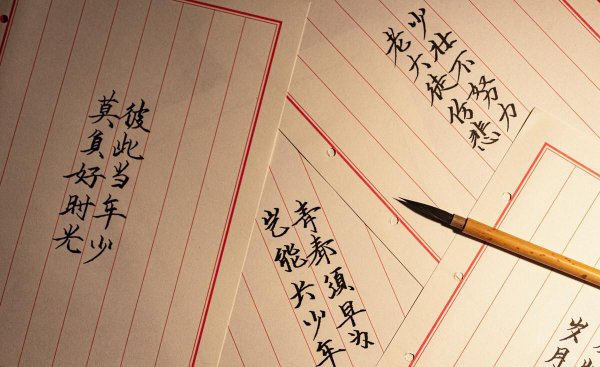 彼此当年少
莫負好时光
少壮不努力
老大徒伤悲
青春須早为
岂能长少年
岁月